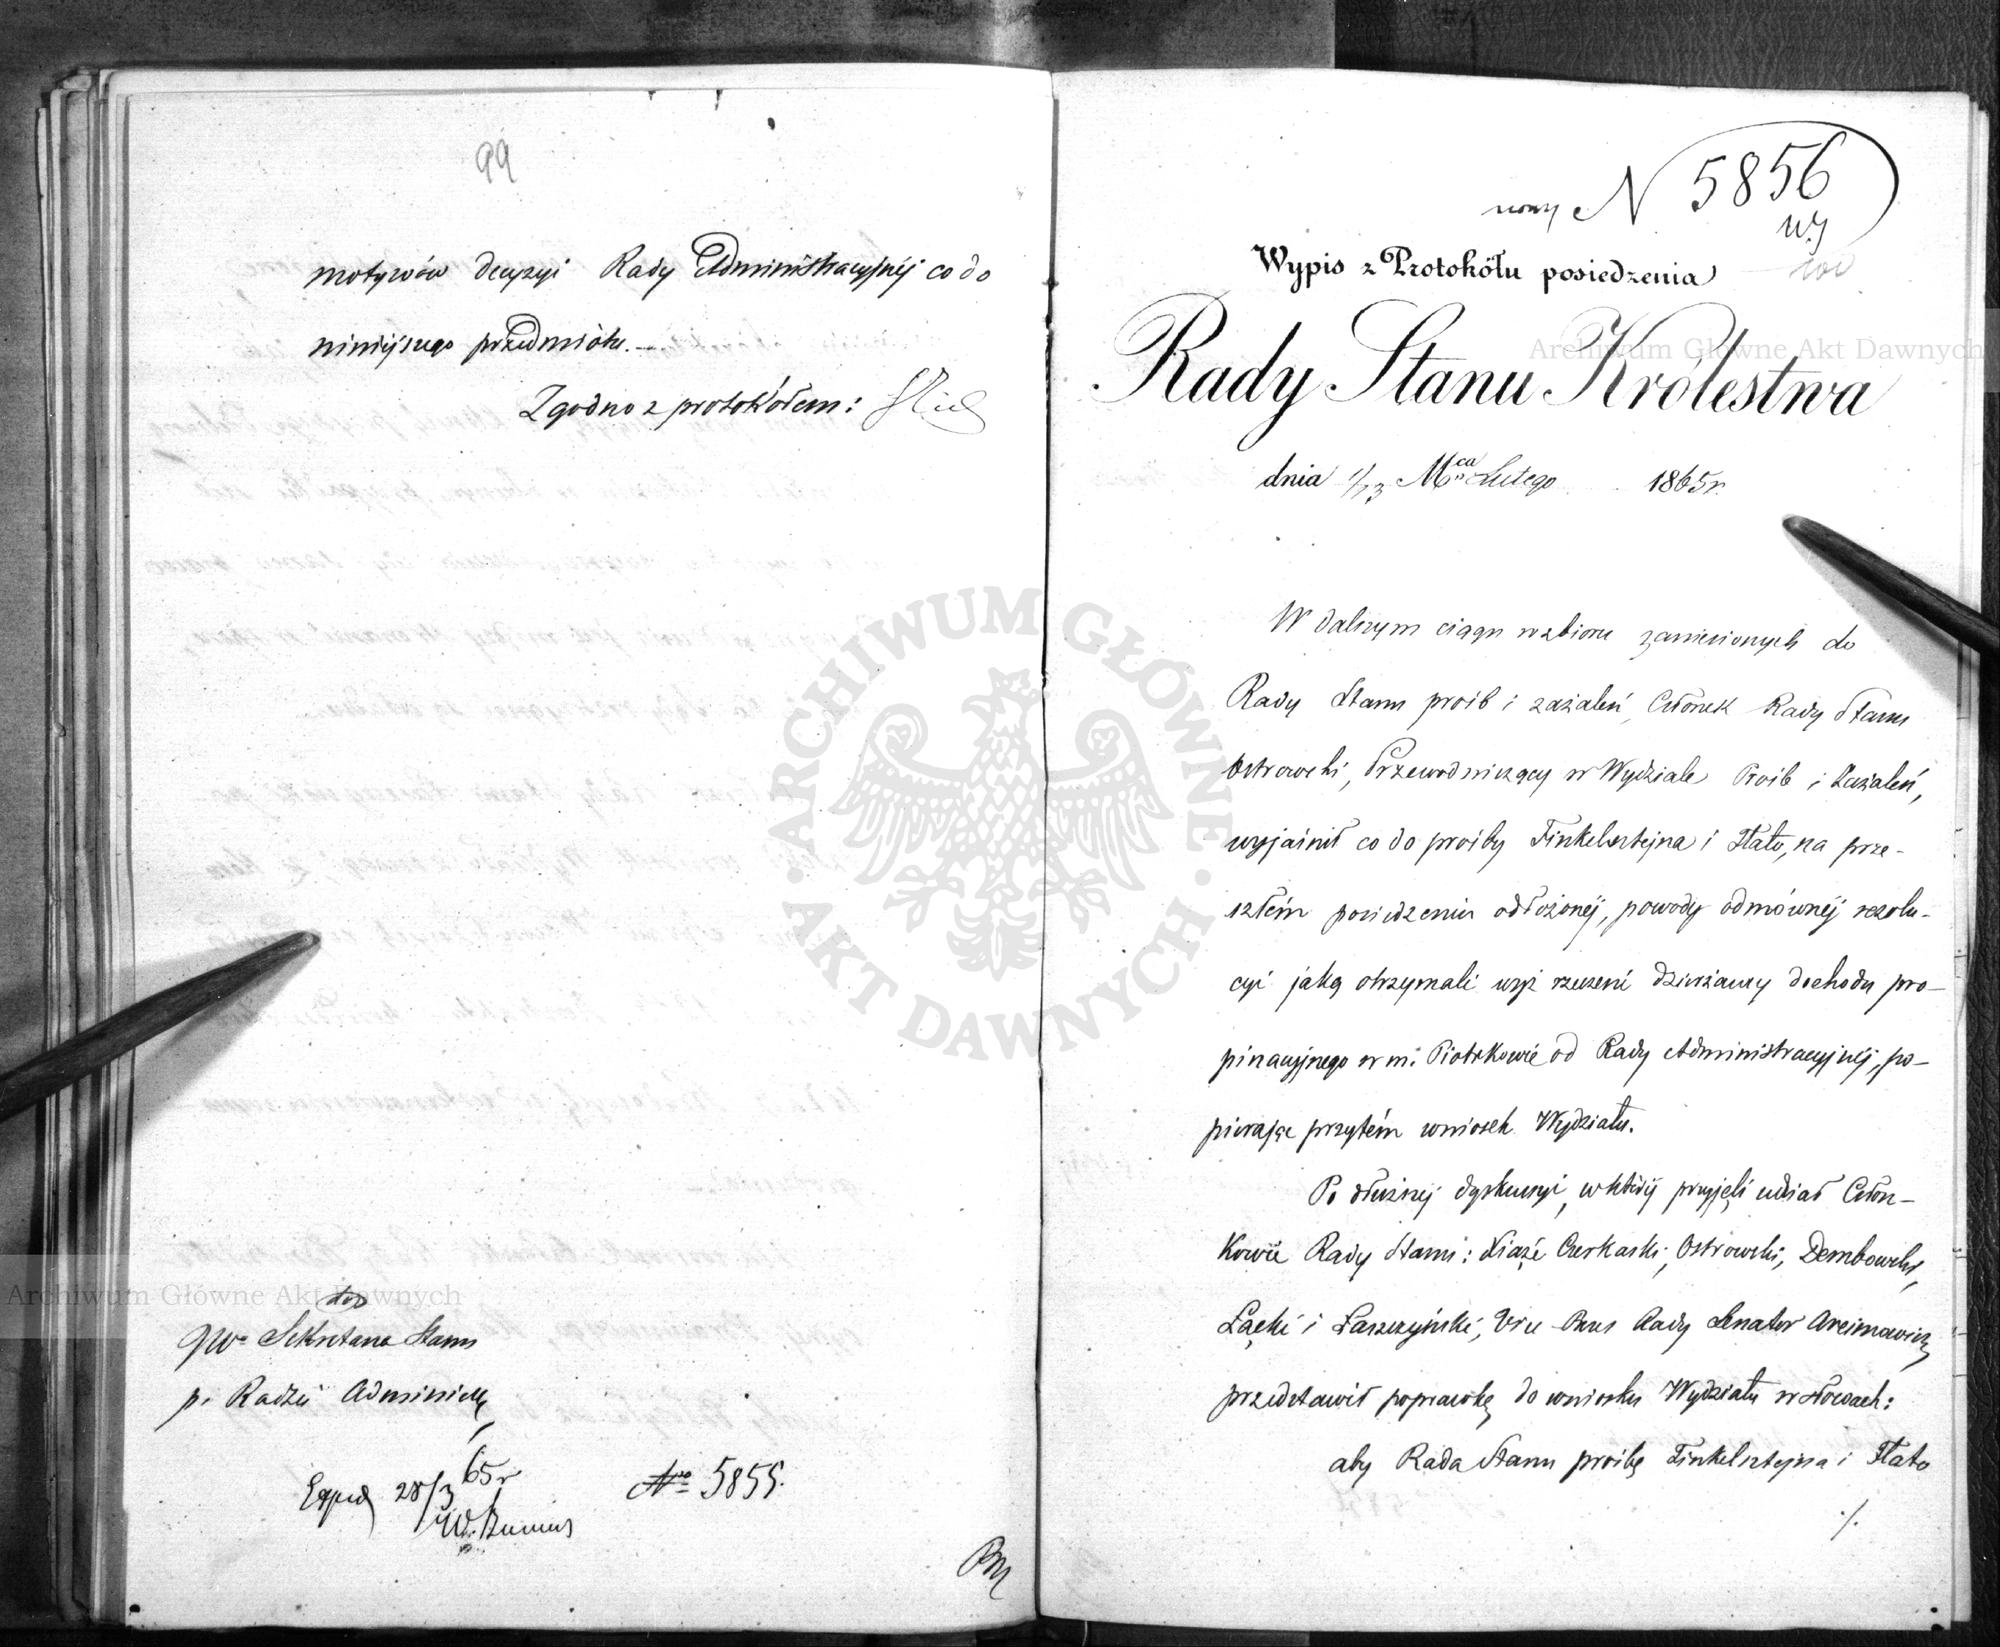 99
motywów decyzyi Rady Administracyjnéj co do
niniejszego przedmiotu.—
Zgodno z protokółem:
do
JW. Sekretarza Stanu
p. Radzie Adminis
Exped 28/3 65 r
No 5855.
nowy N 5856
Wypis z Protokółu posiedzenia
Rady Stanu Królestwa
dnia 1/13 Mca Lutego 1865 r.
W dalszym ciągu rozbioru zaniesionych do
Rady Stanu próśb i zażaleń, Członek Rady Stanu
Ostrowski, Przewodniczący w Wydziale Próśb i Zażaleń,
wyjaśnił co do prośby Finkelsztejna i Flato, na prze-
szłém posiedzeniu odłożonéj, powody odmównéj rezolu-
cyi jaką otrzymali wyż rzeczeni dzierżawcy dochodu pro-
pinacyjnego w m. Piotrkowie od Rady Administracyjnéj, po-
pierając przytém wniosek Wydziału.
Po dłuższej dyskussyi, w któréj przyjęli udział Człon-
kowie Rady Stanu: Xiąże Czerkaski, Ostrowski, Dembowski,
Łącki i Łaszczyński, Vice Prezes Rady Senator Arcimowicz
przedstawił poprawkę do wniosku Wydziału w słowach:
aby Rada Stanu prośbę Finkelsztejna i Flato
./.
Archiwum Główne Akt Dawnych
Archiwum Główne Akt Dawnych
ARCHIWUM GŁÓWNE
AKT DAWNYCH